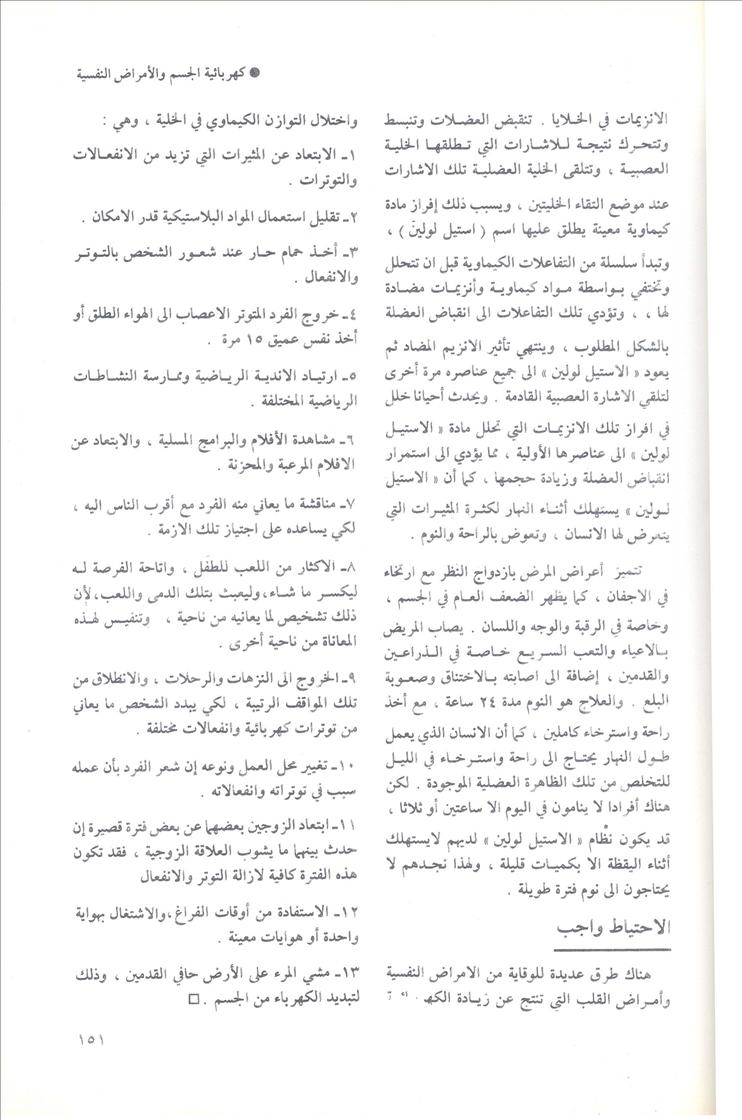 ● كهربائية الجسم والأمراض النفسية
الانزيمات في الخلايا . تنقبض العضلات وتنبسط
وتتحرك نتيجة للاشارات التي تطلقها الخلية
العصبية ، وتتلقى الخلية العضلية تلك الاشارات
عند موضع التقاء الخليتين ، ويسبب ذلك إفراز مادة
كيماوية معينة يطلق عليها اسم ( استيل لولين ) ،
وتبدأ سلسلة من التفاعلات الكيماوية قبل ان تتحلل
وتختفي بواسطة مواد كيماوية وأنزيمات مضادة
لها ، ، وتؤدي تلك التفاعلات الى انقباض العضلة
بالشكل المطلوب ، وينتهي تأثير الانزيم المضاد ثم
يعود « الاستيل لولين » الى جميع عناصره مرة أخرى
لتلقي الاشارة العصبية القادمة . ويحدث أحيانا خلل
في افراز تلك الانزيمات التي تحلل مادة « الاستيل
لولين » الى عناصرها الأولية ، مما يؤدي الى استمرار
انقباض العضلة وزيادة حجمها ، كما أن « الاستيل
لولين » يستهلك أثناء النهار لكثرة المثيرات التي
يتعرض لها الانسان ، وتعوض بالراحة والنوم .
تتميز أعراض المرض بازدواج النظر مع ارتخاء
في الاجفان ، كما يظهر الضعف العام في الجسم ،
وخاصة في الرقبة والوجه واللسان . يصاب المريض
بالاعياء والتعب السريع خاصة في الذراعين
والقدمين ، إضافة الى اصابته بالاختناق وصعوبة
البلع . والعلاج هو النوم مدة ٢٤ ساعة ، مع أخذ
راحة واسترخاء كاملين ، كما أن الانسان الذي يعمل
طول النهار يحتاج الى راحة واسترخاء في الليل
للتخلص من تلك الظاهرة العضلية الموجودة . لكن
هناك أفرادا لا ينامون في اليوم الا ساعتين أو ثلاثا ،
قد يكون نظام « الاستيل لولين » لديهم لايستهلك
أثناء اليقظة الا بكميات قليلة ، ولهذا نجدهم لا
يحتاجون الى نوم فترة طويلة .
الاحتياط واجب
هناك طرق عديدة للوقاية من الامراض النفسية
وأمراض القلب التي تنتج عن زيادة
واختلال التوازن الكيماوي في الخلية ، وهي :
١ـ الابتعاد عن المثيرات التي تزيد من الانفعالات
والتوترات .
٢ـ تقليل استعمال المواد البلاستيكية قدر الامكان .
٣ـ أخذ حمام حار عند شعور الشخص بالتوتر
والانفعال .
٤ـ خروج الفرد المتوتر الاعصاب الى الهواء الطلق أو
أخذ نفس عميق ١٥ مرة .
٥ـ ارتياد الاندية الرياضية وممارسة النشاطات
الرياضية المختلفة .
٦ـ مشاهدة الأفلام والبرامج المسلية ، والابتعاد عن
الافلام المرعبة والمحزنة .
٧ـ مناقشة ما يعاني منه الفرد مع أقرب الناس اليه ،
لكي يساعده على اجتياز تلك الازمة .
٨ـ الاكثار من اللعب للطفل ، واتاحة الفرصة له
ليكسر ما شاء،وليعبث بتلك الدمى واللعب،لأن
ذلك تشخيص لما يعانيه من ناحية ، وتنفيس لهذه
المعاناة من ناحية أخرى .
٩ـ الخروج الى النزهات والرحلات ، والانطلاق من
تلك المواقف الرتيبة ، لكي يبدد الشخص ما يعاني
من توترات كهربائية وانفعالات مختلفة .
١٠ـ تغيير محل العمل ونوعه إن شعر الفرد بأن عمله
سبب في توتراته وانفعالاته .
١١ـ ابتعاد الزوجين بعضهما عن بعض فترة قصيرة إن
حدث بينهما ما يشوب العلاقة الزوجية ، فقد تكون
هذه الفترة كافية لازالة التوتر والانفعال
١٢ـ الاستفادة من أوقات الفراغ،والاشتغال بهواية
واحدة أو هوايات معينة .
١٣ـ مشي المرء على الأرض حافي القدمين ، وذلك
لتبديد الكهرباء من الجسم . □
١٥١